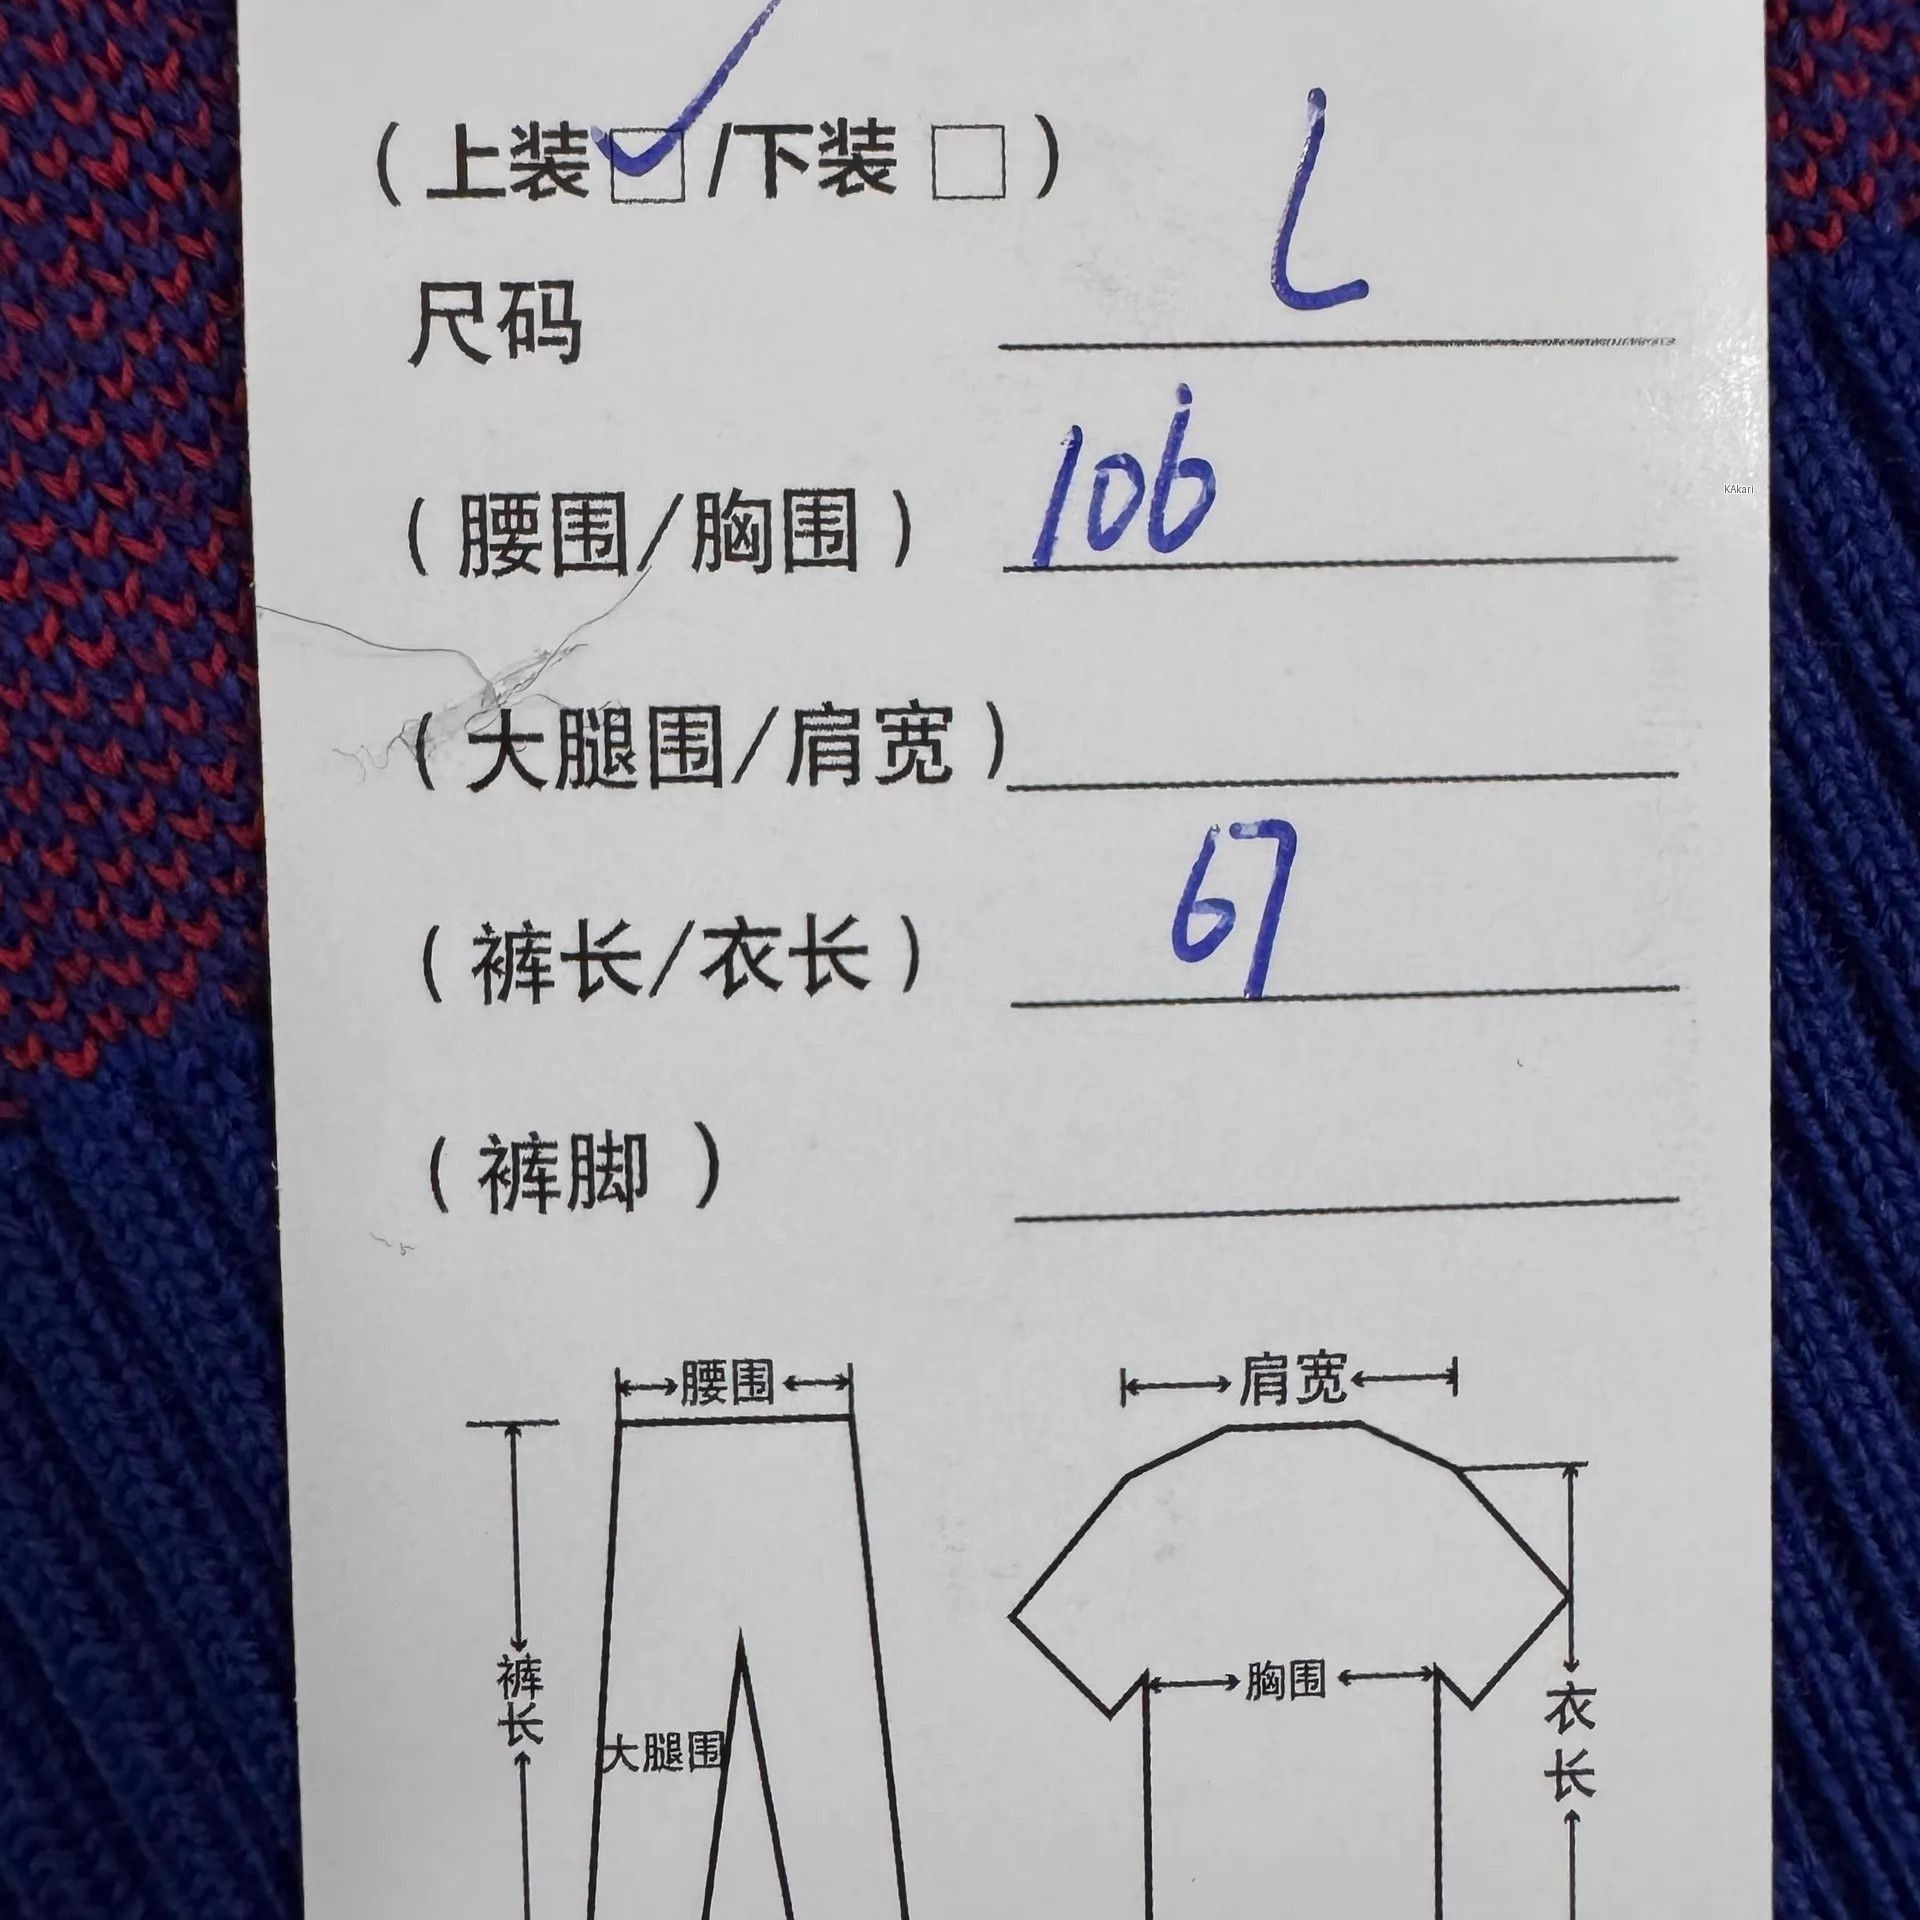 (上装☑/下装□)
尺码 L
(腰围/胸围) 106
(大腿围/肩宽)
(裤长/衣长) 67
(裤脚 )
腰围 肩宽
裤长
大腿围
胸围
衣长
KAkari